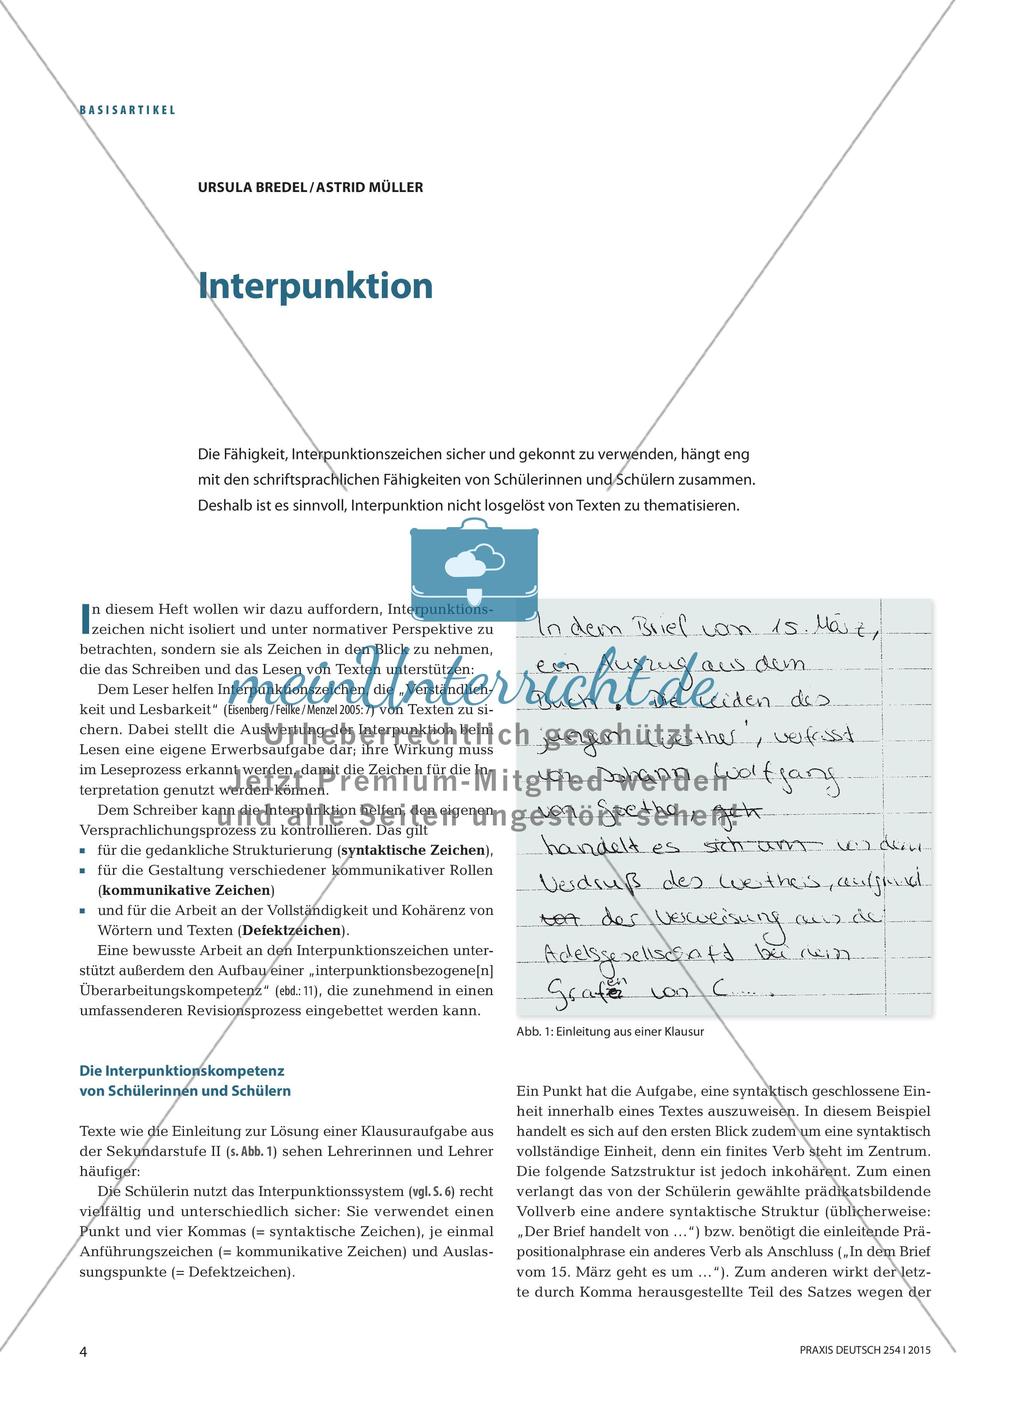 BASISARTIKEL
URSULA BREDEL / ASTRID MÜLLER
Interpunktion
Die Fähigkeit, Interpunktionszeichen sicher und gekonnt zu verwenden, hängt eng
mit den schriftsprachlichen Fähigkeiten von Schülerinnen und Schülern zusammen.
Deshalb ist es sinnvoll, Interpunktion nicht losgelöst von Texten zu thematisieren.
In diesem Heft wollen wir dazu auffordern, Interpunktions-
zeichen nicht isoliert und unter normativer Perspektive zu
betrachten, sondern sie als Zeichen in den Blick zu nehmen,
die das Schreiben und das Lesen von Texten unterstützen:
Dem Leser helfen Interpunktionszeichen, die „Verständlich-
keit und Lesbarkeit“ (Eisenberg / Feilke / Menzel 2005: 7) von Texten zu si-
chern. Dabei stellt die Auswertung der Interpunktion beim
Lesen eine eigene Erwerbsaufgabe dar; ihre Wirkung muss
im Leseprozess erkannt werden, damit die Zeichen für die In-
terpretation genutzt werden können.
Dem Schreiber kann die Interpunktion helfen, den eigenen
Versprachlichungsprozess zu kontrollieren. Das gilt
▪ für die gedankliche Strukturierung (syntaktische Zeichen),
▪ für die Gestaltung verschiedener kommunikativer Rollen
(kommunikative Zeichen)
▪ und für die Arbeit an der Vollständigkeit und Kohärenz von
Wörtern und Texten (Defektzeichen).
Eine bewusste Arbeit an den Interpunktionszeichen unter-
stützt außerdem den Aufbau einer „interpunktionsbezogene[n]
Überarbeitungskompetenz“ (ebd.: 11), die zunehmend in einen
umfassenderen Revisionsprozess eingebettet werden kann.
Die Interpunktionskompetenz
von Schülerinnen und Schülern
Texte wie die Einleitung zur Lösung einer Klausuraufgabe aus
der Sekundarstufe II (s. Abb. 1) sehen Lehrerinnen und Lehrer
häufiger:
Die Schülerin nutzt das Interpunktionssystem (vgl. S. 6) recht
vielfältig und unterschiedlich sicher: Sie verwendet einen
Punkt und vier Kommas (= syntaktische Zeichen), je einmal
Anführungszeichen (= kommunikative Zeichen) und Auslas-
sungspunkte (= Defektzeichen).
In dem Brief vom 15. März,
ein Auszug aus dem
Buch , Die Leiden des
jungen Werther ' , verfasst
von Johann Wolfgang
von Goethe, geh
handelt es sich um von dem
Verdruß des Werthers, aufgrund
von der Verweisung aus de
Adelsgesellschaft bei
Grafen von C.....
Abb. 1: Einleitung aus einer Klausur
Ein Punkt hat die Aufgabe, eine syntaktisch geschlossene Ein-
heit innerhalb eines Textes auszuweisen. In diesem Beispiel
handelt es sich auf den ersten Blick zudem um eine syntaktisch
vollständige Einheit, denn ein finites Verb steht im Zentrum.
Die folgende Satzstruktur ist jedoch inkohärent. Zum einen
verlangt das von der Schülerin gewählte prädikatsbildende
Vollverb eine andere syntaktische Struktur (üblicherweise:
„Der Brief handelt von …“) bzw. benötigt die einleitende Prä-
positionalphrase ein anderes Verb als Anschluss („In dem Brief
vom 15. März geht es um …“). Zum anderen wirkt der letz-
te durch Komma herausgestellte Teil des Satzes wegen der
meinUnterricht.de
Urheberrechtlich geschützt
Jetzt Premium-Mitglied werden
und alle Seiten ungestört sehen!
4
PRAXIS DEUTSCH 254 | 2015